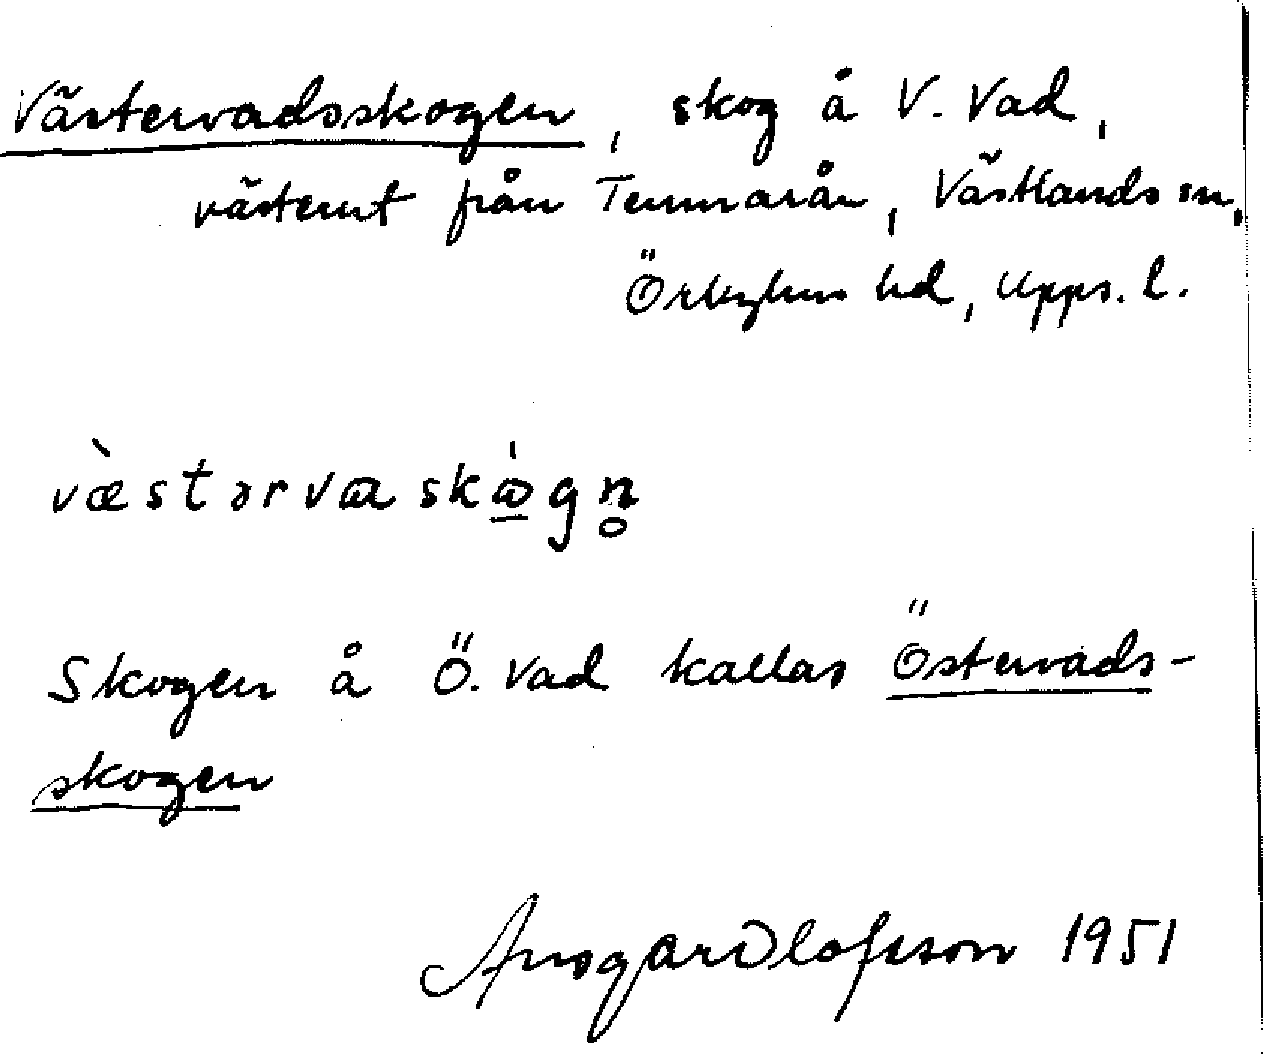 Västervadsskogen, skog å V. Vad,
västerut från Tämnarån, Västlands sn,
Örbyhus hd, Upps. l.
væ̀stərvɑskɷ̀gn̥
Skogen å Ö. Vad kallas Östervads-
skogen
Ansgar Olofsson 1951